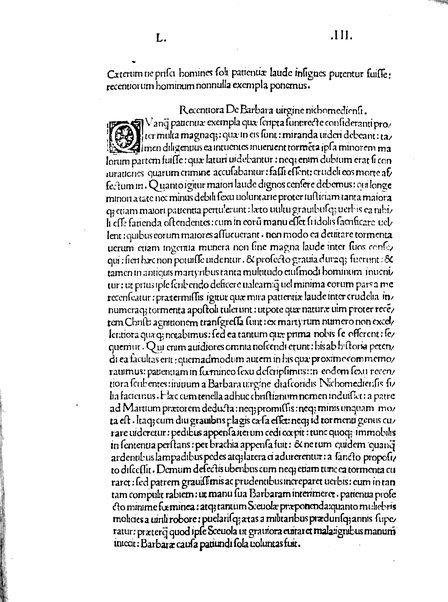 L. .III.
Cæterum ne prisci homines soli patientiæ laude insignes putentur fuisse:
recentiorum hominum nonnulla exempla ponemus.
Recentiora De Barbara uirgine nichomediensi.
QVanq̃ patientiæ exempla quæ scripta sunt recte consideranti pro/
pter multa magnaq; quæ in eis sunt: miranda uideri debeant: ta/
men diligentius ea intuentes inuenient tormēta ipsa minorem ma
lorum partem fuisse: quæ laturi uidebantur: neq; enim dubium erat si con
iurationes quarum crimine accusabantur: fassi essent: crudeli eos morte af/
fectum iri. Quanto igitur maiori laude dignos censere debemus: qui longe
minori ætate nec minus debili sexu uoluntarie propter iustitiam tanta maiora
q; etiam maiori patientia pertulerunt: læto uultu grauibusq; uerbis ea nihi/
li esse facienda ostendentes: cum in eorū manu esset si idolis sacrificare uel/
lent: quibus eorum maiores assueuerant. non modo ea deuitare tormenta
uerum etiam ingentia munera non sine magna laude inter suos conse/
qui: fieri hæc non potuisse uidentur. & profecto grauia duraq; fuerunt: &
tamen in antiquis martyribus tanta multitudo eiusmodi hominum inueni/
tur: ut prius ipse scribendo deficere ualeamq̃ uel minima eorum pars a me
recenseatur: prætermissis igitur quæ mira patientiæ laude inter crudelia in/
numeraq; tormenta apostoli tulerunt: utpote quæ naturæ uim propter recē/
tem Christi agnitionem transgressa sunt: ex martyrum numero non excel/
lentiora quæq; notabimus: sed ea tantum quæ prima nobis se offerent: se/
quemur. Qui eorum audiōres omnia noscendi erunt: his ab historia peten/
di ea facultas erit: quemadmodum autem in his quæ proxime commemo/
rauimus: patientiam fœmineo sexu descripsimus: in eodem sexu recen/
tiora scribentes: initium a Barbara uirgine dioscoridis Nichomediensis fi/
lia faciemus. Hæc cum tenella adhuc christianum nomen induisset: a patre
ad Martium prætorem deducta: neq; promissis: neq; minis unquam mo/
ta est. Itaq; cum diu grauibus plagis cæsa esset: neq; id tormenti genus cu/
rare uideretur: pedibus appensa iterum cedi cœpit: tunc quoq; immobilis
in sententia perstans: per brachia appensa fuit: & ne tum quidem quanq̃
ardentibus lampadibus pedes atq; latera ei adurerentur: a sancto proposi/
to discessit. Demum desectis uberibus cum neq; etiam tunc ea tormenta cu
raret: sed patrem grauissimis ac prudentibus increparet uerbis: eum in tan
tam compulit rabiem: ut manu sua Barbaram interimeret. patientia profe
cto minime fœminea: atq; tantum Sceuolæ præponenda: quanto muliebris
molicies a uirili robore: puelarisq; ætas a militaribus præduris q; annis supe/
ratur: præterq̃ quod ipse Sceuola ut grauiora euitaret mala: ignibus manum
iniecit: Barbaræ causa patiundi sola uoluntas fuit.